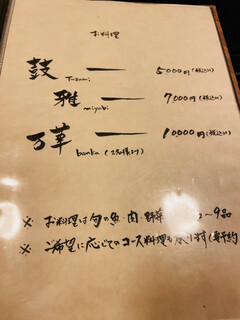 お料理
鼓 ー 5,000円(税込み)
Tuzumi
雅 ー 7,000円(税込み)
miyabi
万葉 ー 10,000円(税込み)
(2名様より)
※ お料理は旬の魚・肉・野菜 〜9品
※ ご希望に応じてのコース料理も承ります(要予約